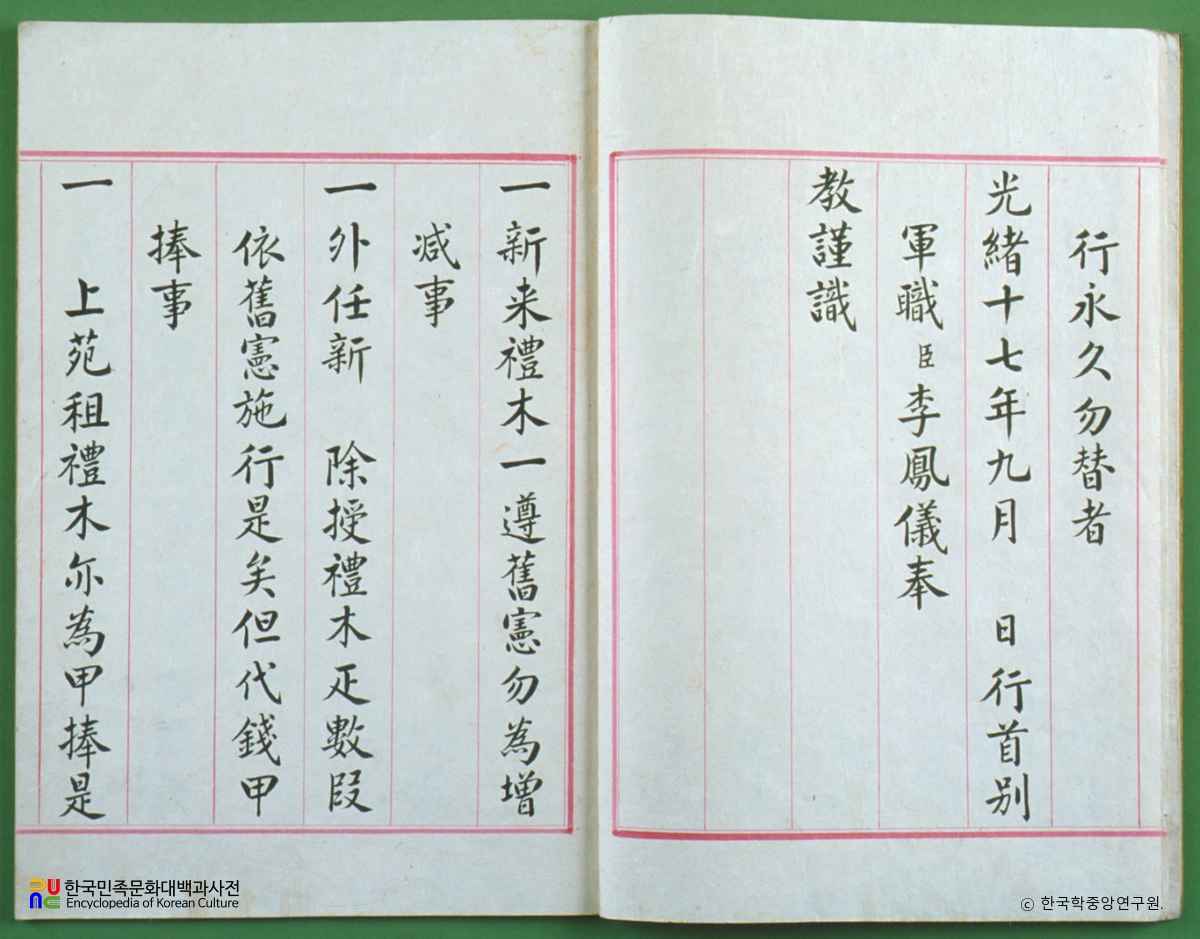 行永久勿替者
光緒十七年九月　日行首別
軍職臣李鳳儀奉
教謹識
一新来禮木一遵舊憲勿為增
减事
一外任新　除授禮木疋數段
依舊憲施行是矣但代錢甲
捧事
一　上苑租禮木亦為甲捧是
한국민족문화대백과사전
Encyclopedia of Korean Culture
ⓒ 한국학중앙연구원.